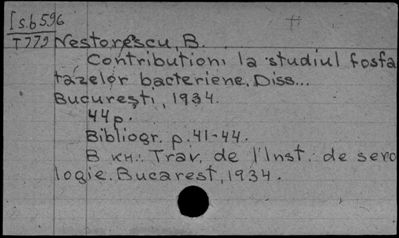 I s.b 596
T 779 Nestorescu, B.
Contributioni la studiul fosfa
tazelor bacteriene. Diss...
Bucureşti, 1934.
44 p.
Bibliogr. p. 41-44.
В кн.: Trav. de l'Inst. de sero
logie. Bucarest, 1934.